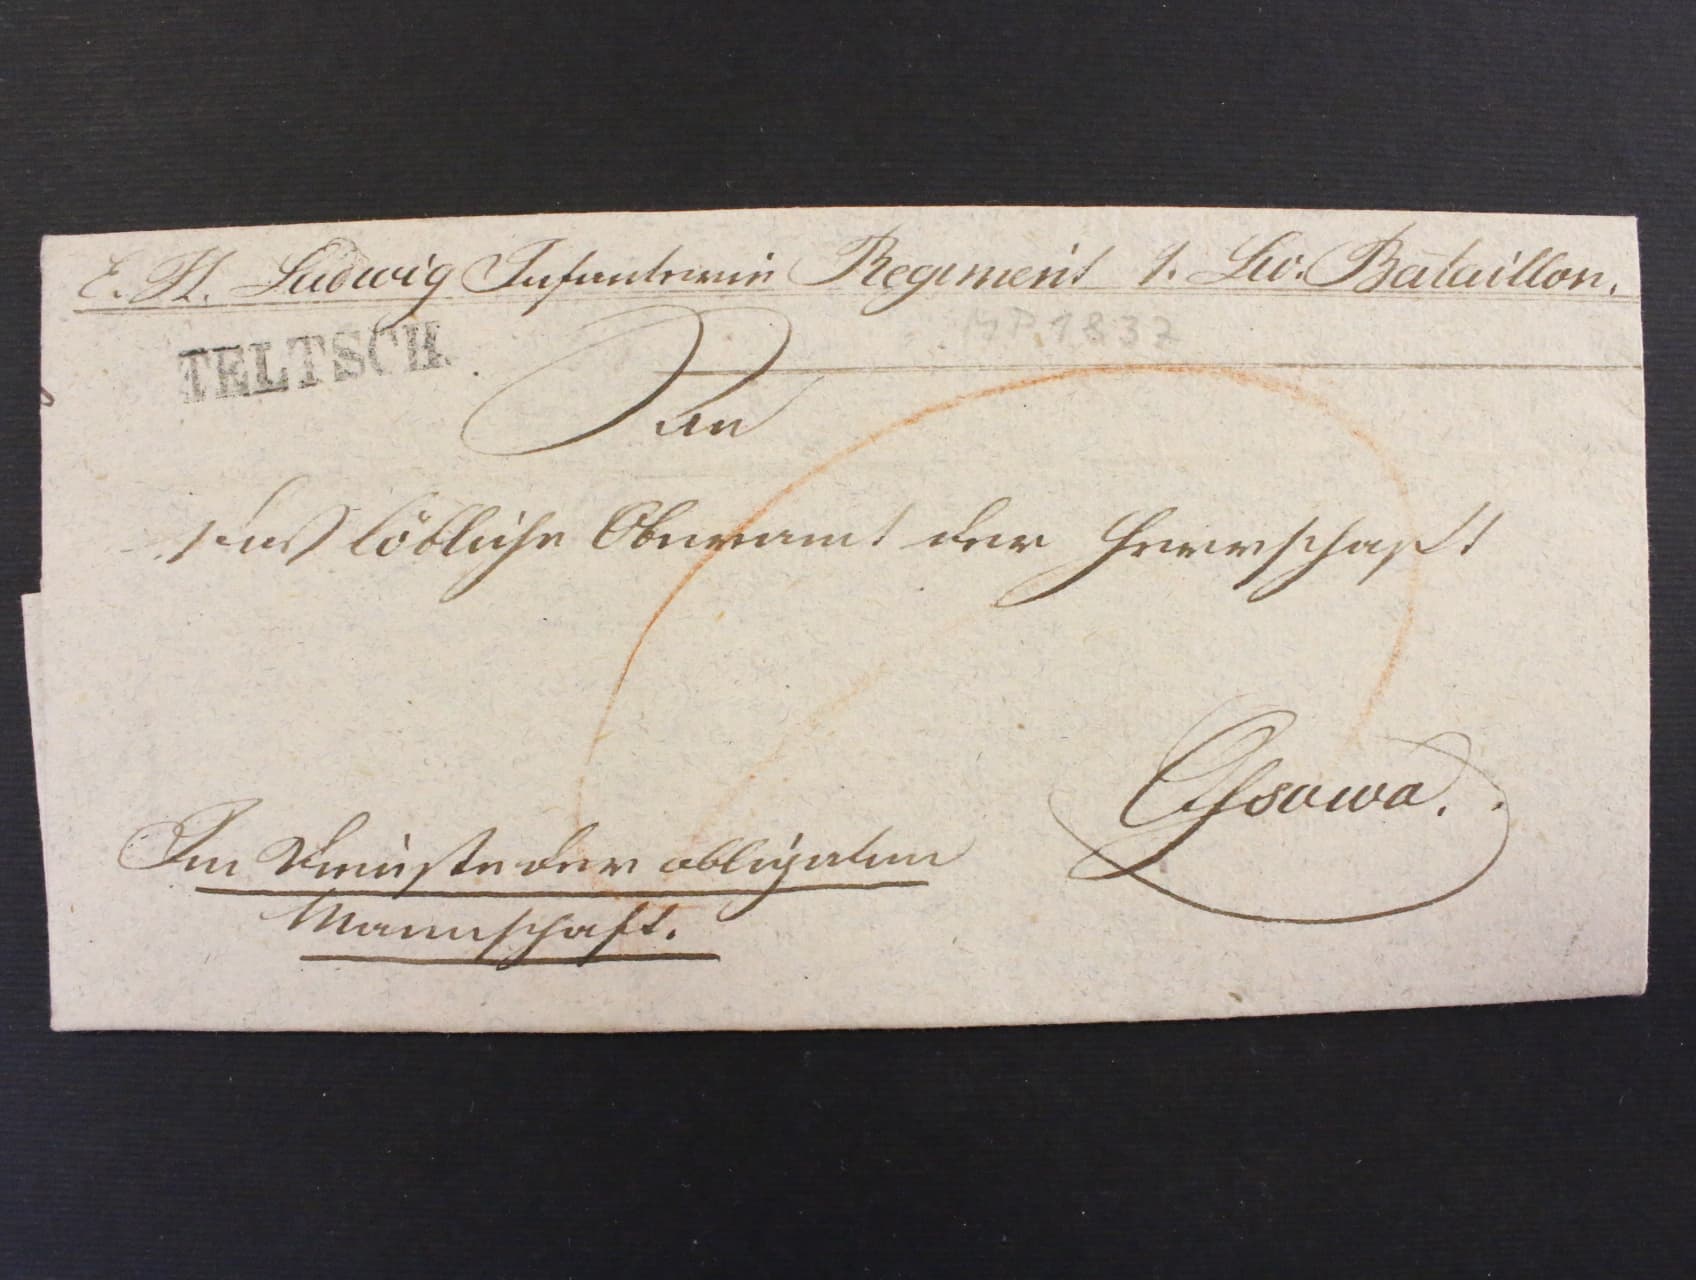 E. H. Ludwig Infanterie Regiment 1. Lw. Bataillon.
TELTSCH.
1832
An
das löbliche Oberamt der Herrschaft
Ossowa.
Im Dienste der obligaten
Mannschaft.